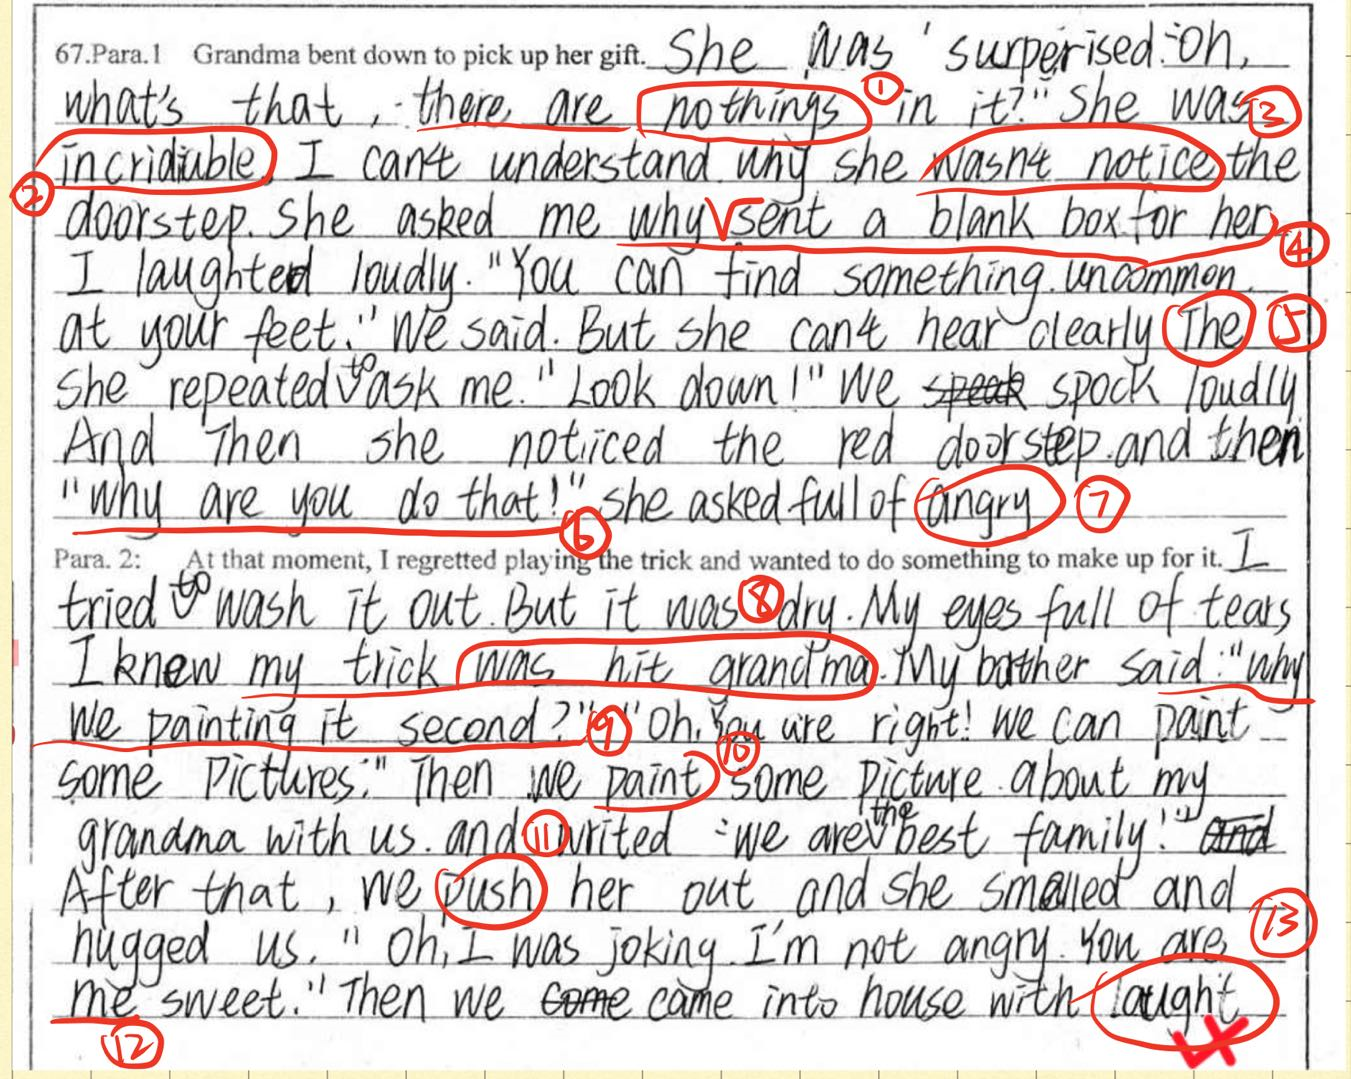 67.Para.1 Grandma bent down to pick up her gift. She was surperised. "Oh,
what's that, there are nothings ① in it?" She was ③
incridiable. I can't understand why she wasn't notice the
② doorstep. She asked me why √ sent a blank box for her, ④
I laughted loudly. "You can find something uncommon
at your feet." We said. But she can't hear clearly The ⑤
she repeated to ask me. "Look down!" We speak spock loudly
And Then she noticed the red doorstep. and then
"Why are you do that!" she asked full of angry ⑦
⑥
Para. 2: At that moment, I regretted playing the trick and wanted to do something to make up for it. I
tried to wash it out. But it was ⑧ dry. My eyes full of tears
I knew my trick was hit grandma. My borther said: "Why
we painting it second?" ⑨ "Oh, You are right! We can paint
⑩
some Pictures." Then we paint some Picture about my
grandma with us. and ⑪ writed "We are the best family!" and
After that, we push her out and she smalled and
hugged us. "Oh, I was joking. I'm not angry. You are ⑬
me sweet." Then we come came into house with laught
⑫